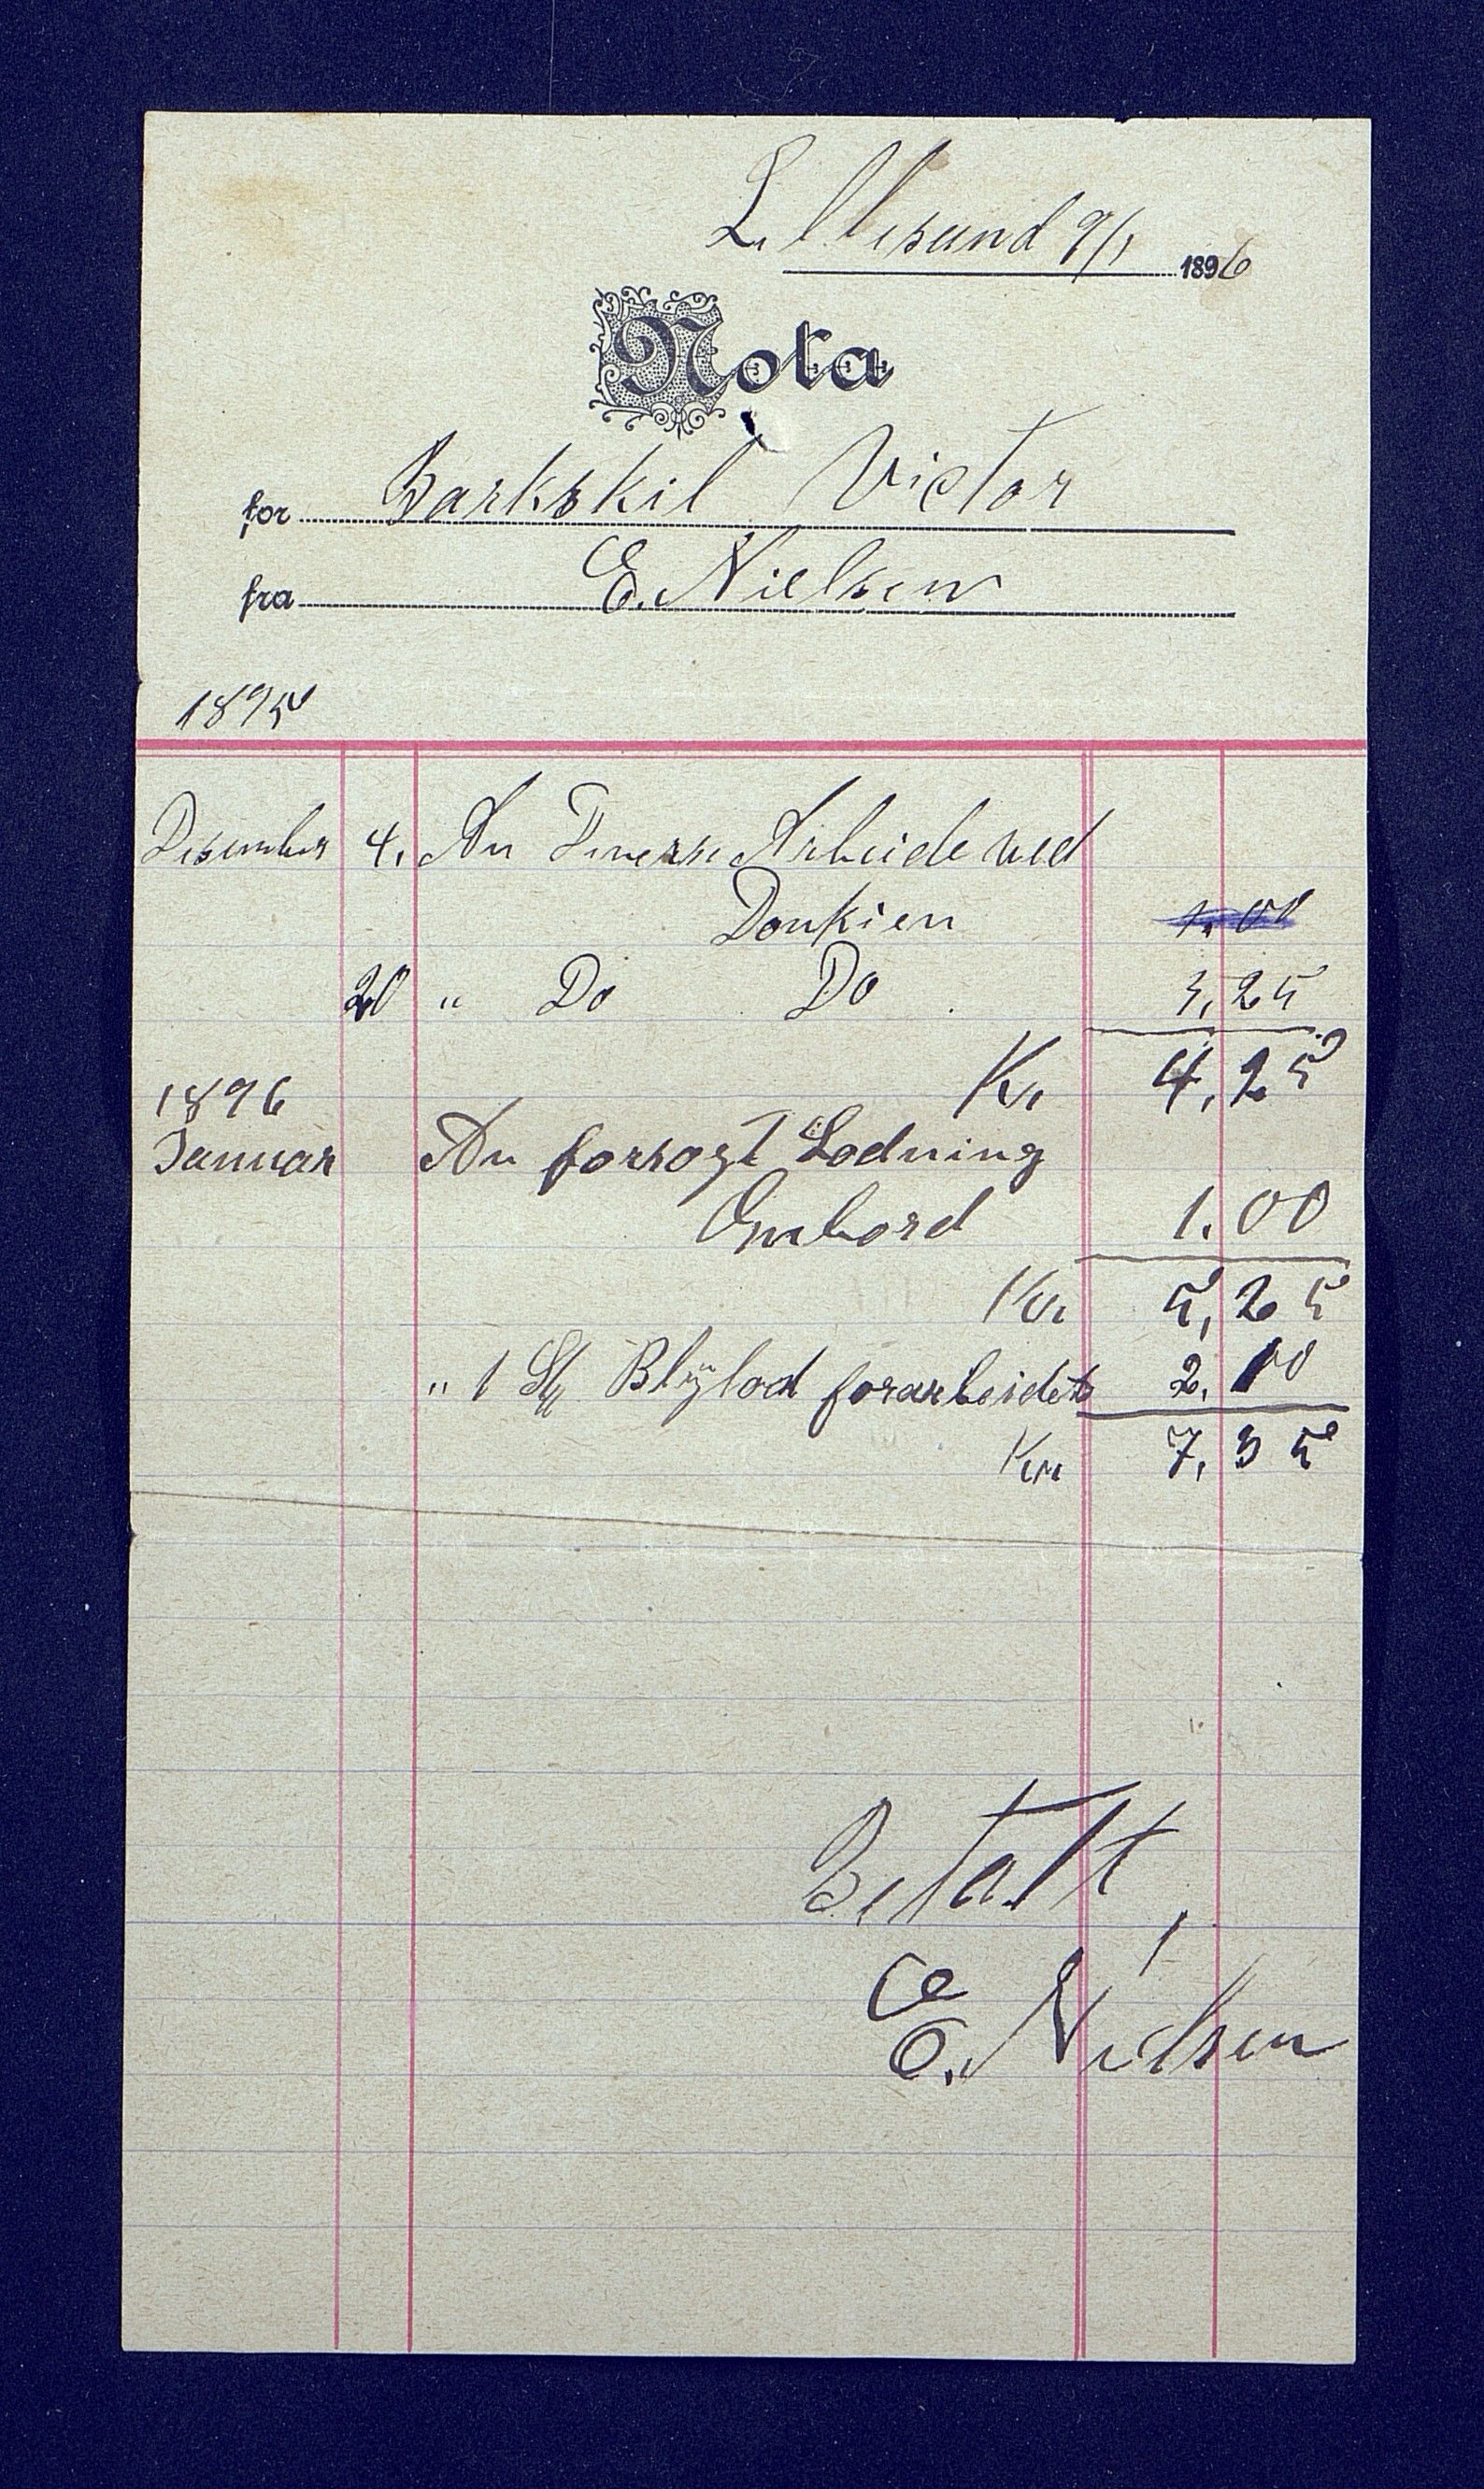 Lillesund 9/1 1896
Nota
for Barkskil Victor
fra E. Nielsen
1895
Desember 4. An Diverse Arbeide ved
Donkien 1.00
20 " Do Do 3,25
Kr 4,25
1896
Januar An forsogt Lodning
Ombord 1.00
Kr 5,25
" 1 Stk Blÿlod forarbeidet 2.10
Kr 7,35
Betalt,
E. Nielsen